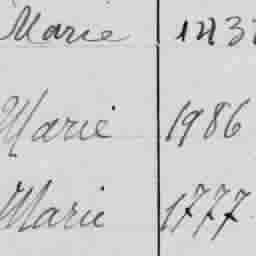 Marie 1437
Marie 1986
Marie 1777